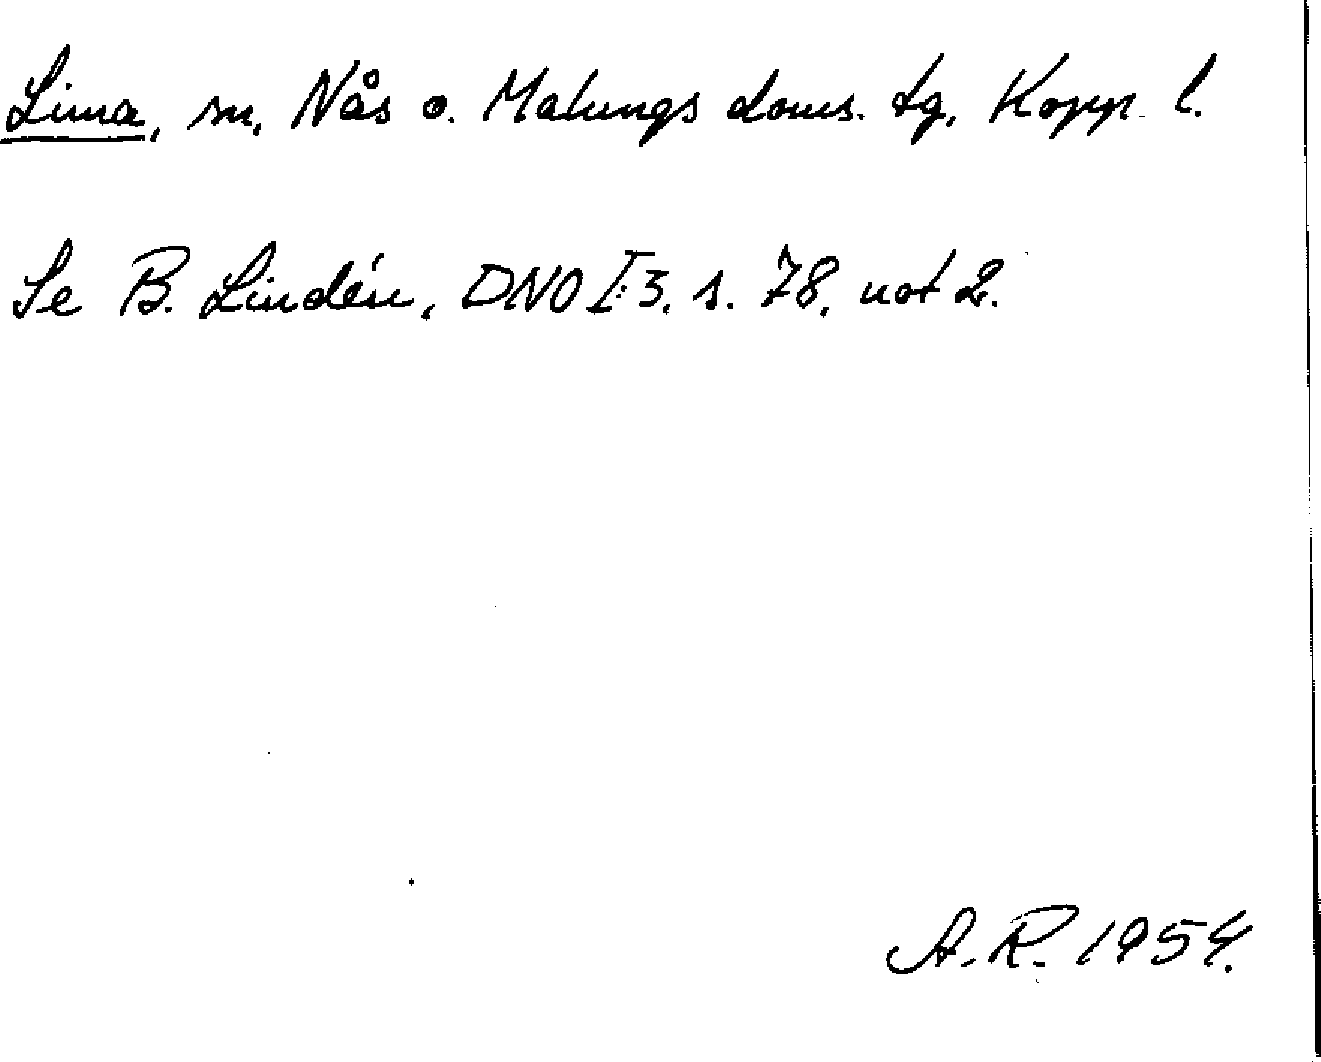 Lima, sn, Nås o. Malungs doms. tg, Kopp. l.
Se B. Lindén, DNO I:3, s. 78, not 2.
A.R. 1954.